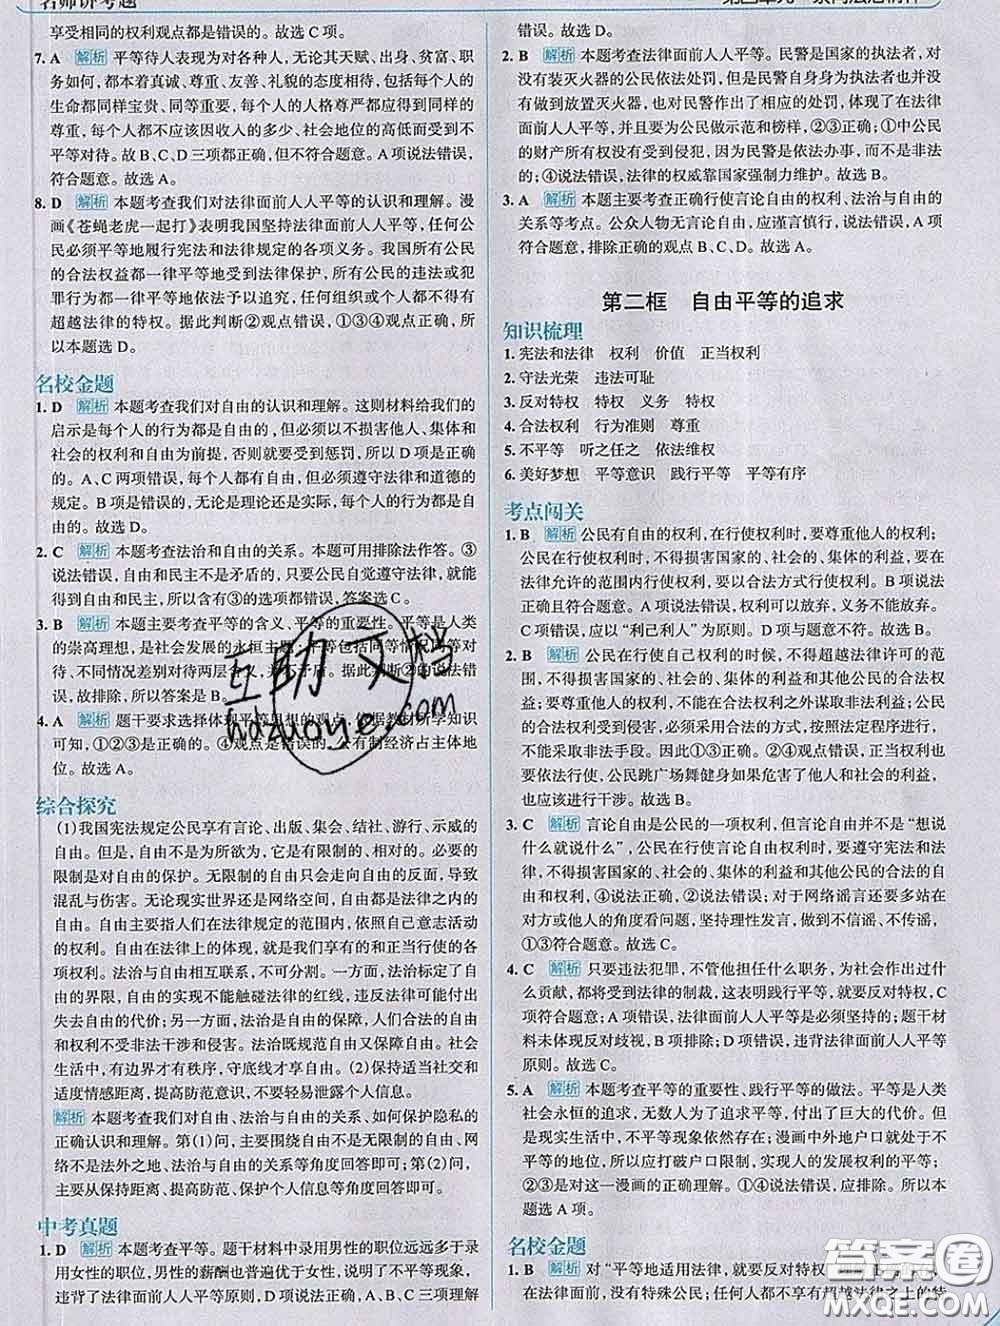 名师讲考题
享受相同的权利观点都是错误的。故选 C 项。
7. A 解析 平等待人表现为对各种人,无论其天赋、出身、贫富、职
务如何,都本着真诚、尊重、友善、礼貌的态度相待,包括每个人的
生命都同样宝贵、同等重要,每个人的人格尊严都应得到同样的
尊重,每个人都不应该因收入的多少、社会地位的高低而受到不
平等对待。故 B、C、D 三项都正确,但不符合题意。A 项说法错误,
符合题意。故选 A。
8. D 解析 本题考查我们对法律面前人人平等的认识和理解。漫
画《苍蝇老虎一起打》表明我国坚持法律面前人人平等,任何公
民必须平等地履行宪法和法律规定的各项义务。我国所有公民
的合法权益都一律平等地受到法律保护,所有公民的违法或犯
罪行为都一律平等地依法予以追究,任何组织或个人都不得有
超越法律的特权。据此判断②观点错误,①③④观点正确,所
以本题选 D。
名校金题
1. D 解析 本题考查我们对自由的认识和理解。这则材料给我们的
启示是每个人的行为都是自由的,但必须以不损害他人、集体和
社会的权利和自由为前提,否则就要受到惩罚,所以 D 项是正确
的。A、C 两项错误,每个人都有自由,但必须遵守法律和道德的
规定。B 项是错误的,无论是理论还是实际,每个人的行为都是自
由的。故选 D。
2. C 解析 本题考查法治和自由的关系。本题可用排除法作答。③
说法错误,自由和民主不是矛盾的,只要公民自觉遵守法律,就能
得到自由和民主,所以含有③的选项都错误,答案选 C。
3. B 解析 本题主要考查平等的含义、平等的重要性。平等是人类
的崇高理想,是社会发展的永恒主题,平等包括同等情况同等对
待、不同情况差别对待两层含义,并不矛盾。据此判断②的说法错
误,故排除,所以答案是 B。
4. A 解析 题干要求选择体现平等思想的观点,依据教材所学知识
可知,①②③是正确的。④观点是错误的,公有制经济占主体地
位。故选 A。
综合探究
(1)我国宪法规定公民享有言论、出版、集会、结社、游行、示威的
自由。但是,自由不是为所欲为,它是有限制的、相对的。必要的
限制是对自由的保护。无限制的自由只会走向自由的反面,导致
混乱与伤害。无论现实世界还是网络空间,自由都是法律之内的
自由。自由主要指人们在法律规定的范围内,依照自己意志活动
的权利。自由在法律上的体现,就是我们享有的和正当行使的各
项权利。法治与自由相互联系,不可分割。一方面,法治标定了自
由的界限,自由的实现不能触碰法律的红线,违反法律可能付出
失去自由的代价;另一方面,法治是自由的保障,人们合法的自由
和权利不受非法干涉和侵害。法治既规范自由又保障自由。社会
生活中,有边界才有秩序,守底线才享自由。(2)保持适当社交和
适度情感距离,提高防范意识,不要轻易泄露个人信息。
解析 本题考查我们对自由、法治与自由的关系、如何保护隐私的
正确认识和理解。第(1)问,主要围绕自由不是无限制的自由、网
络不是法外之地、法治与自由的关系等角度回答即可;第(2)问,
主要从保持距离、提高防范、保护个人信息等角度回答即可。
中考真题
1. D 解析 本题考查平等。题干材料中录用男性的职位远远多于录
用女性的职位,男性的薪酬也普遍优于女性,说明了不平等现象,
违背了法律面前人人平等,所以 D 项符合题意。A、B、C 三项理解
有误。故选 D。
2. B 解析 本题考查法律面前人人平等。民警是国家的执法者,对
没有装灭火器的公民依法处罚,但是民警自身身为执法者也并
没有做到放置灭火器,对民警作出了相应的处罚,体现了在法律
面前人人平等,并且要为公民做示范和榜样,②③正确;①中公民
的财产所有权没有受到侵犯,因为民警是依法办事,而不是非法
的;④说法错误,法律的权威靠国家强制力维护。故选 B。
3. A 解析 本题主要考查正确行使言论自由的权利、法治与自由的
关系等考点。公众人物无言论自由,应谨言慎行,说法错误,A 项
符合题意,排除正确的观点 B、C、D。故选 A。
第二框 自由平等的追求
知识梳理
1. 宪法和法律 权利 价值 正当权利
2. 守法光荣 违法可耻
3. 反对特权 特权 义务 特权
4. 合法权利 行为准则 尊重
5. 不平等 听之任之 依法维权
6. 美好梦想 平等意识 践行平等 平等有序
考点闯关
1. B 解析 公民有自由的权利,在行使权利时,要尊重他人的权利;
公民在行使权利时,不得损害国家的、社会的、集体的利益,要在
法律允许的范围内行使权利,要以合法方式行使权利。B 项说法
正确且符合题意。A 项说法错误,权利可以放弃,义务不能放弃。
C 项错误,应以“利己利人”为原则。D 项与题意不符。故选 B。
2. B 解析 公民在行使自己权利的时候,不得超越法律许可的范
围,不得损害国家的、社会的、集体的利益和其他公民的自由和
合法权益;不能在合法权利之外谋取非法利益,不能采用非法手
段牟取合法利益,必须采用合法的方式,按照法定程序进行,
不能采取非法手段。因此①③正确。②④错误,正当权利也
要依法行使,公民跳广场舞健身如果危害了他人和社会的利益,
也应该进行干涉。故选 B。
3. C 解析 言论自由是公民的一项权利,但言论自由并不是“想说
什么就说什么”,公民在行使言论自由权利时,要遵守宪法和法
律,不得损害国家的、社会的、集体的利益和其他公民的合法的自
由和权利,④说法正确,②说法错误;对于网络谣言还要多站在
对方或他人的角度看问题,坚持理性发言,做到不信谣、不传谣,
①③符合题意。故选 C。
4. C 解析 只要违法犯罪,不管他担任什么职务,为社会作出过什
么贡献,都将受到法律的制裁,这表明践行平等,要反对特权,C
项符合题意;A 项错误,法律面前人人平等是必须坚持的;题干材
料未体现反对歧视,B 项排除;D 项错误,违背法律面前人人平等
原则。故选 C。
5. A 解析 本题考查平等的重要性、践行平等的做法。平等是人类
社会永恒的追求,无数人为了追求平等,付出了巨大的代价。但
是现实生活中,不平等现象依然存在;漫画中外地户口就处于不
平等的地位,所以应打破户口限制,实现人的发展权利的平等;
②③是对这一漫画的正确理解。①④说法错误,应排除。所以本
题选 A 项。
名校金题
1. B 解析 对“平等地适用法律,就要反对特权
在法律面前,没有特殊公民,都不享有超越法律之上的特
互助文档
hdzuoye.com
答案圈
MXQE.COM